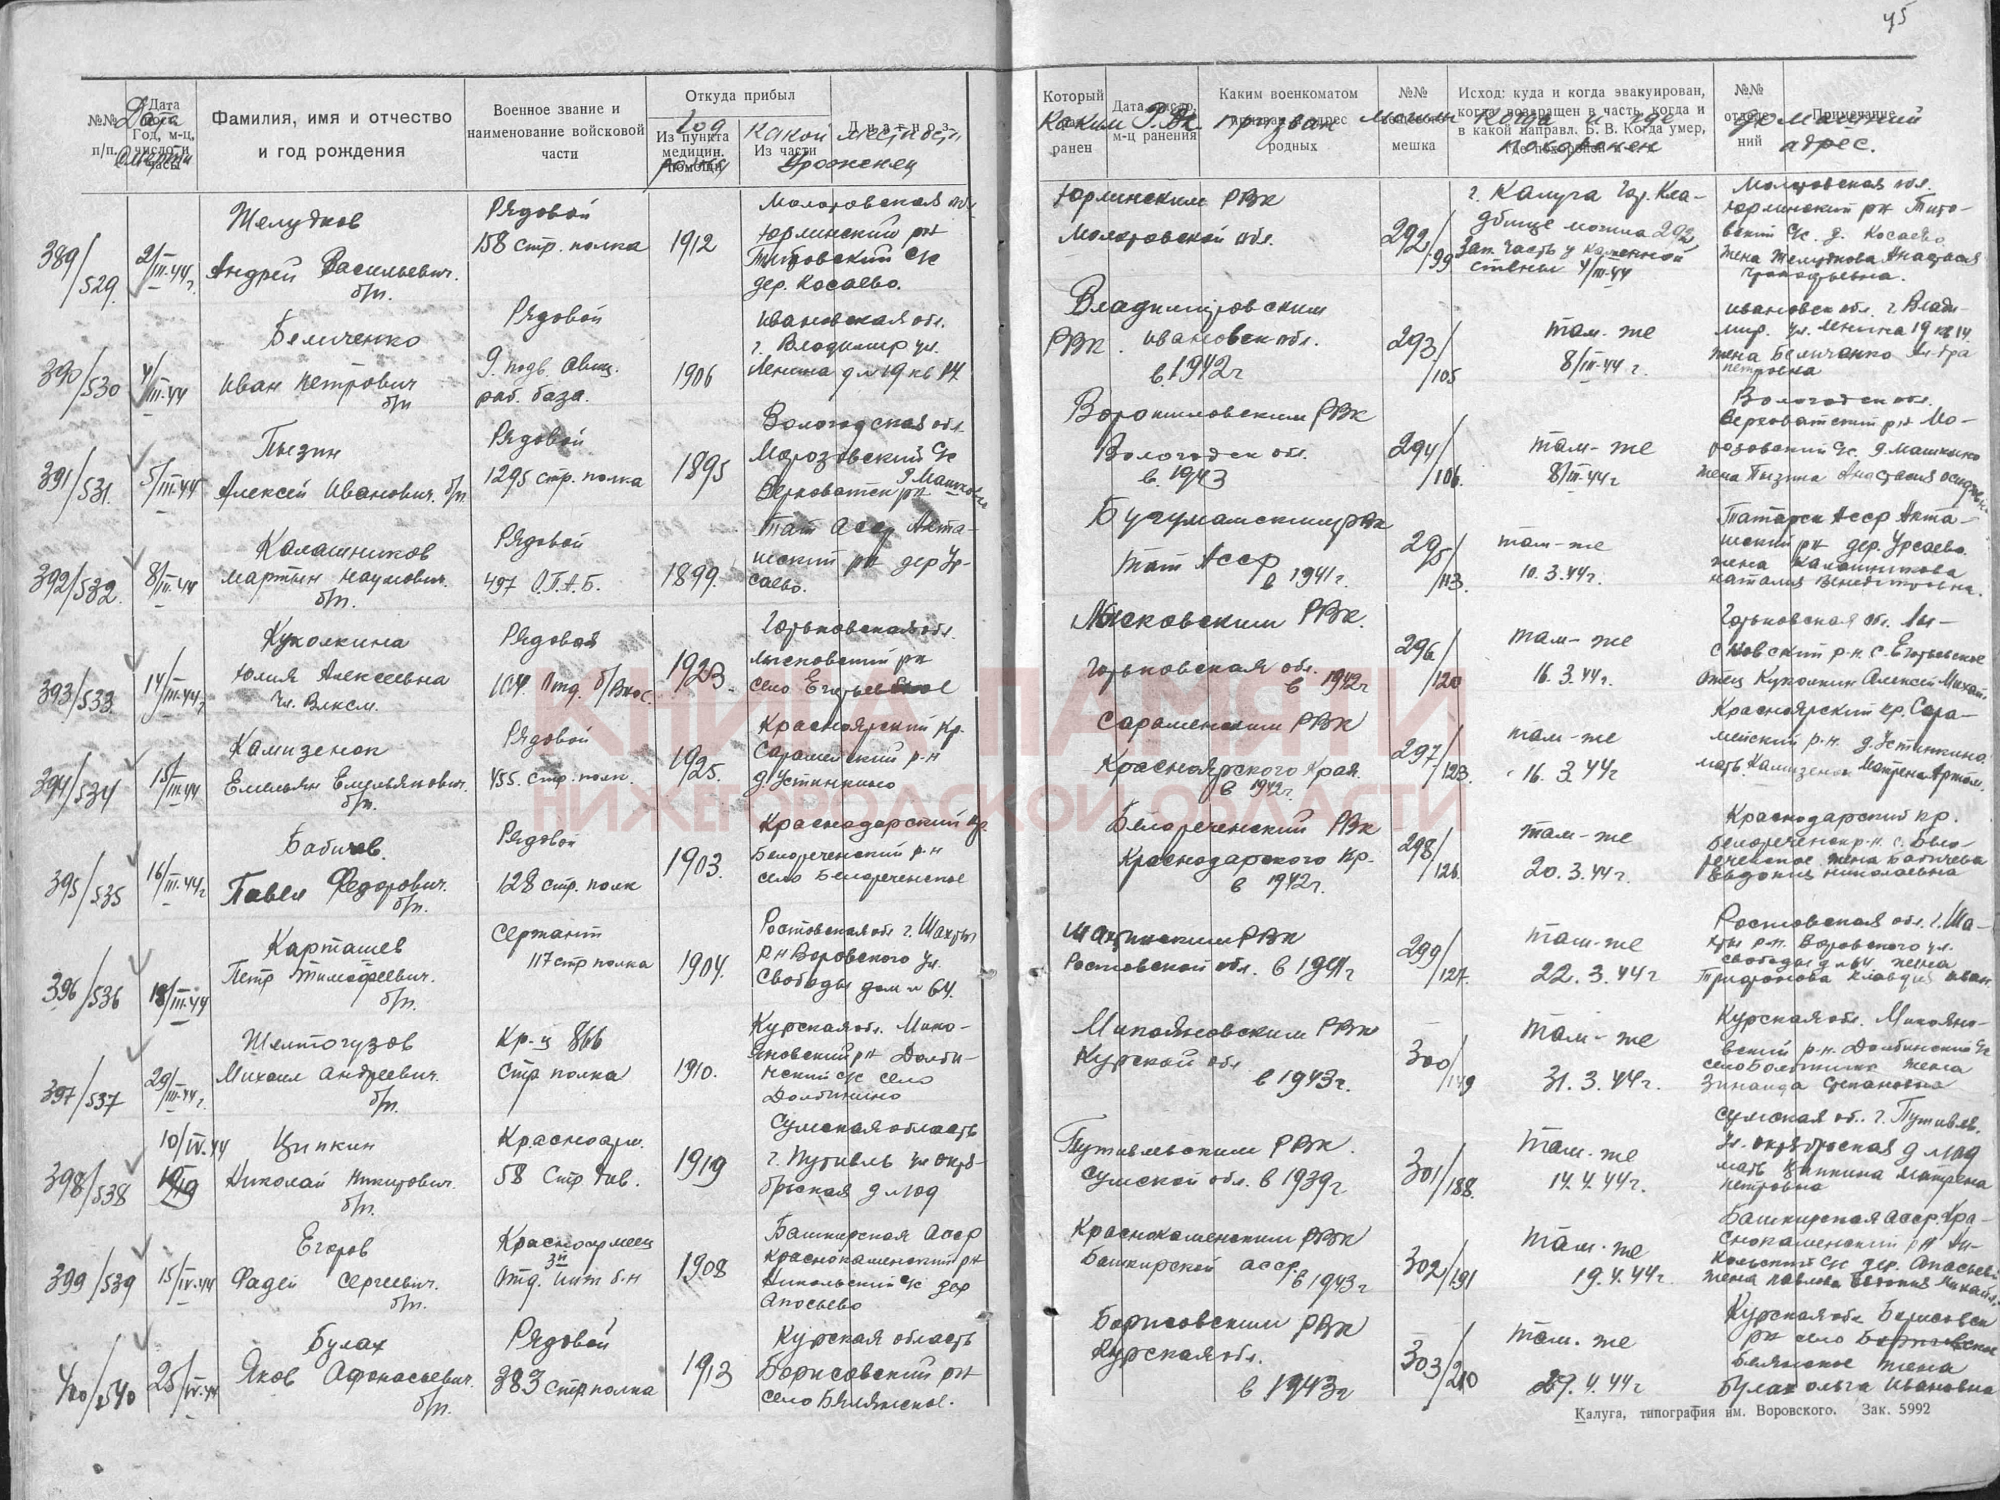 45
№№ п/п.
Дата
Год, м-ц, число и часы
Дата смерти
Фамилия, имя и отчество и год рождения
Военное звание и наименование войсковой части
Откуда прибыл
Из пункта медицин. помощи
Год рожд.
Из части
какой местност.
Уроженец
Диагноз
Который ранен
Дата, число, м-ц ранения
Каким военкоматом призван и адрес родных
Каким РВК призван
№№ мешка
могилы
Исход: куда и когда эвакуирован, когда возвращен в часть, когда и в какой направл. Б. В. Когда умер, где похоронен
Когда и где похоронен
№№ отделений
Примечание
домашний адрес.
389/529.
2/III-44г.
Желудков
Андрей Васильевич.
б/п.
Рядовой
158 стр. полка
1912
Молотовская обл.
Юрлинский рн
Титовский с/с
дер. Косаево.
Юрлинским РВК
Молотовской обл.
292/99
г. Калуга Гор. Кла-
дбище могила 292
Зап. часть у каменной
стены 4/III-44
Молотовская обл.
Юрлинский рн Тито-
вский с/с. д. Косаево
жена Желудкова Анастасия
390/530
4/III-44
Беличенко
Иван Петрович
б/п
Рядовой
раб. база.
1906
Ивановская обл.
г. Владимир ул.
Ленина д №19 кв 14.
Владимировским
РВК. Ивановск обл.
в 1942г
293/105
там-же
8/III-44 г.
Ивановск обл. г Влади-
мир. ул. Ленина 19 кв 14.
жена Беличенко
Петровна
391/531.
5/III-44
Пызин
Алексей Иванович. б/п
Рядовой
1295 стр. полка
1895
Вологодская обл.
Морозовский с/с
Верховатск рн
Ворошиловским РВК
Вологодск обл.
в 1943
294/106.
там-же
8/III-44г
Вологодск обл.
Верховатский рн Мо-
розовский с/с. д. Машкино
жена Пызина Анастасия
392/532.
8/III-44
Калашников
Мартын Наумович.
б/п.
Рядовой
497 О.П.А.Б.
1899.
Тат АССР Акта-
шский рн дер Ур-
саево.
Бугульманским РВК
Тат АССР
в 1941г.
295/113.
там-же
10.3.44г.
Татарск АССР Акта-
шский рн дер. Урсаево.
жена Калашникова
Наталия Венедиктовна.
393/533
14/III-44г
Куколкина
Юлия Алексеевна
чл. Влксм.
Рядовая
104 Отд.
1923.
Горьковская обл.
Лысковский рн
село Егорьевское
Лысковским РВК.
Горьковская обл.
в 1942г
296/120
там-же
16.3.44г.
Горьковская об. Лы-
сковский р-н с. Егорьевское
отец Куколкин Алексей Михай.
394/534
15/III-44
Камизенок
Емельян Емельянович.
б/п.
Рядовой
455. стр. полк.
1925.
Красноярский Кр.
р-н
д. Устинкино
РВК
Красноярского Края.
в 1942г.
297/123.
там-же
16.3.44г
Красноярский кр. Сара-
р-н. д. Устинкино.
мать. Камизенок Матрена Артём.
395/535
16/III-44г
Бабичев.
Павел Федорович.
б/п.
Рядовой
128 стр. полк
1903.
Краснодарский кр.
Белореченский р-н
село Белореченское
Белореченский РВК
Краснодарского Кр.
в 1942г.
298/126.
там-же
20.3.44г.
Краснодарский кр.
Белореченск р-н. с. Бело-
реченское жена Бабичева
Евдокия Николаевна
396/536
18/III-44
Карташев
Петр Тимофеевич.
б/п.
Сержант
117 стр полка
1904.
Ростовская обл г. Шахты
р-н Воровского ул.
Свободы дом № 64.
Шахтинским РВК
Ростовской обл. в 1941г
299/127.
там-же
22.3.44г
Ростовская обл. г. Ша-
хты р-н. Воровского ул.
свободы д № 64. жена
Трифонова Клавдия Иван
397/537
29/III-44г.
Желтогузов
Михаил Андреевич.
б/п.
Кр-ц 866
стр полка
1910.
Курская обл. Мико-
яновский рн Долби-
нский с/с село
Долбинино
Микояновским РВК
Курской обл
в 1943г.
300/149
там-же
31.3.44г.
Курская обл. Микояно-
вский р-н. Долбинский с/с
жена
Зинаида Степановна
398/538
10/IV-44
Ципкин
Николай Никитович.
б/п.
Красноарм.
58 Стр див.
1919
Сумская область
г. Путивль ул октя-
брьская д №109
Путивльским РВК.
Сумской обл. в 1939г
301/188.
там-же
14.4.44г.
Сумская об. г. Путивль.
Ул. октябрьская д №109
мать Ципкина Матрена
Петровна
399/539
15/IV-44
Егоров
Фадей Сергеевич.
б/п.
Красноармеец
3й
Отд. инж б-н
1908
Башкирская АССР
Краснокаменский рн
Никольский с/с дер
Апосьево
Краснокаменским РВК
Башкирской асср.
в 1943г
302/191
там-же
19.4.44г.
Башкирская асср. Кра-
снокаменский рн Ни-
кольский с/с дер. Апасьево
жена Павлова
400/540
25/IV-44
Булах
Яков Афонасьевич.
б/п.
Рядовой
383 стр полка
1913
Курская область
Борисовский рн
село Белянское.
Борисовским РВК
Курская обл.
в 1943г
303/210
там-же
29.4.44г
Курская обл Борисовск
рн село Борисовское
Белянское жена
Булах Ольга Ивановна
Калуга, типография им. Воровского. Зак. 5992
КНИГА ПАМЯТИ
НИЖЕГОРОДСКОЙ ОБЛАСТИ